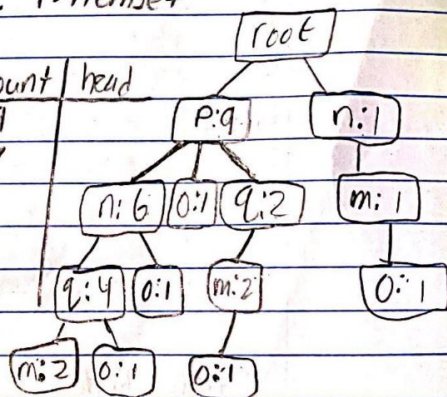 root
count head
p:9 n:1
n:6 o:1 q:2 m:1
q:4 o:1 m:2 o:1
m:2 o:1 o:1